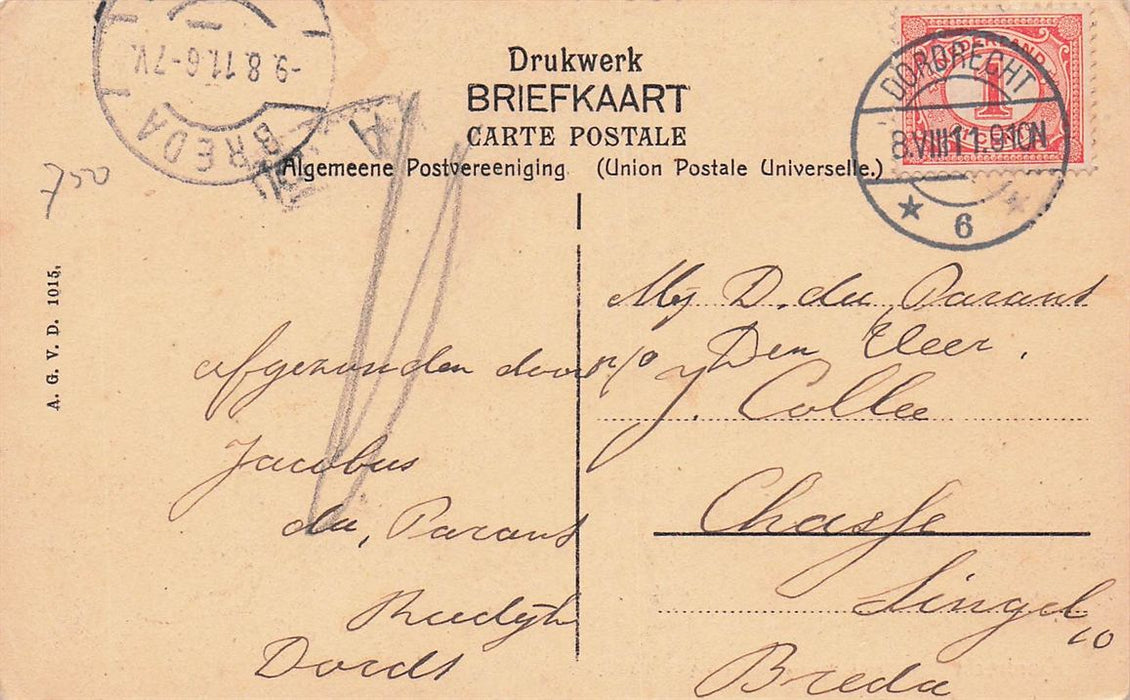 Drukwerk
BRIEFKAART
CARTE POSTALE
Algemeene Postvereeniging. (Union Postale Universelle.)
BREDA
-9.8.11.6-7V.
BREDA
A
NEDERLAND
1
CENT
DORDRECHT
8.VIII11.910N
6
750
A. G. V. D. 1015.
afgezonden door
Jacobus
du Parant
Dordt
Mej D. du Parant
p/o Den Heer,
J. Collee
Chasse
Singel
10
Breda